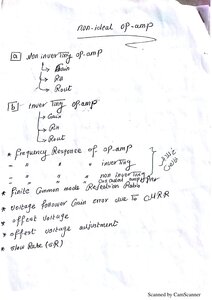 non-ideal op-amp
a Non inverting op-amp
→ Gain
→ Rin
→ Rout
b Inverting op-amp
→ Gain
→ Rin
→ Rout
* Frequency Response of op-amp
" " " inverting
" " " non inverting
op-amp
* Finite Common mode Rejection Ratio
* voltage follower Gain error due to CMRR
* offset voltage
* offset voltage adjustment
* slew Rate (SR)
Scanned by CamScanner